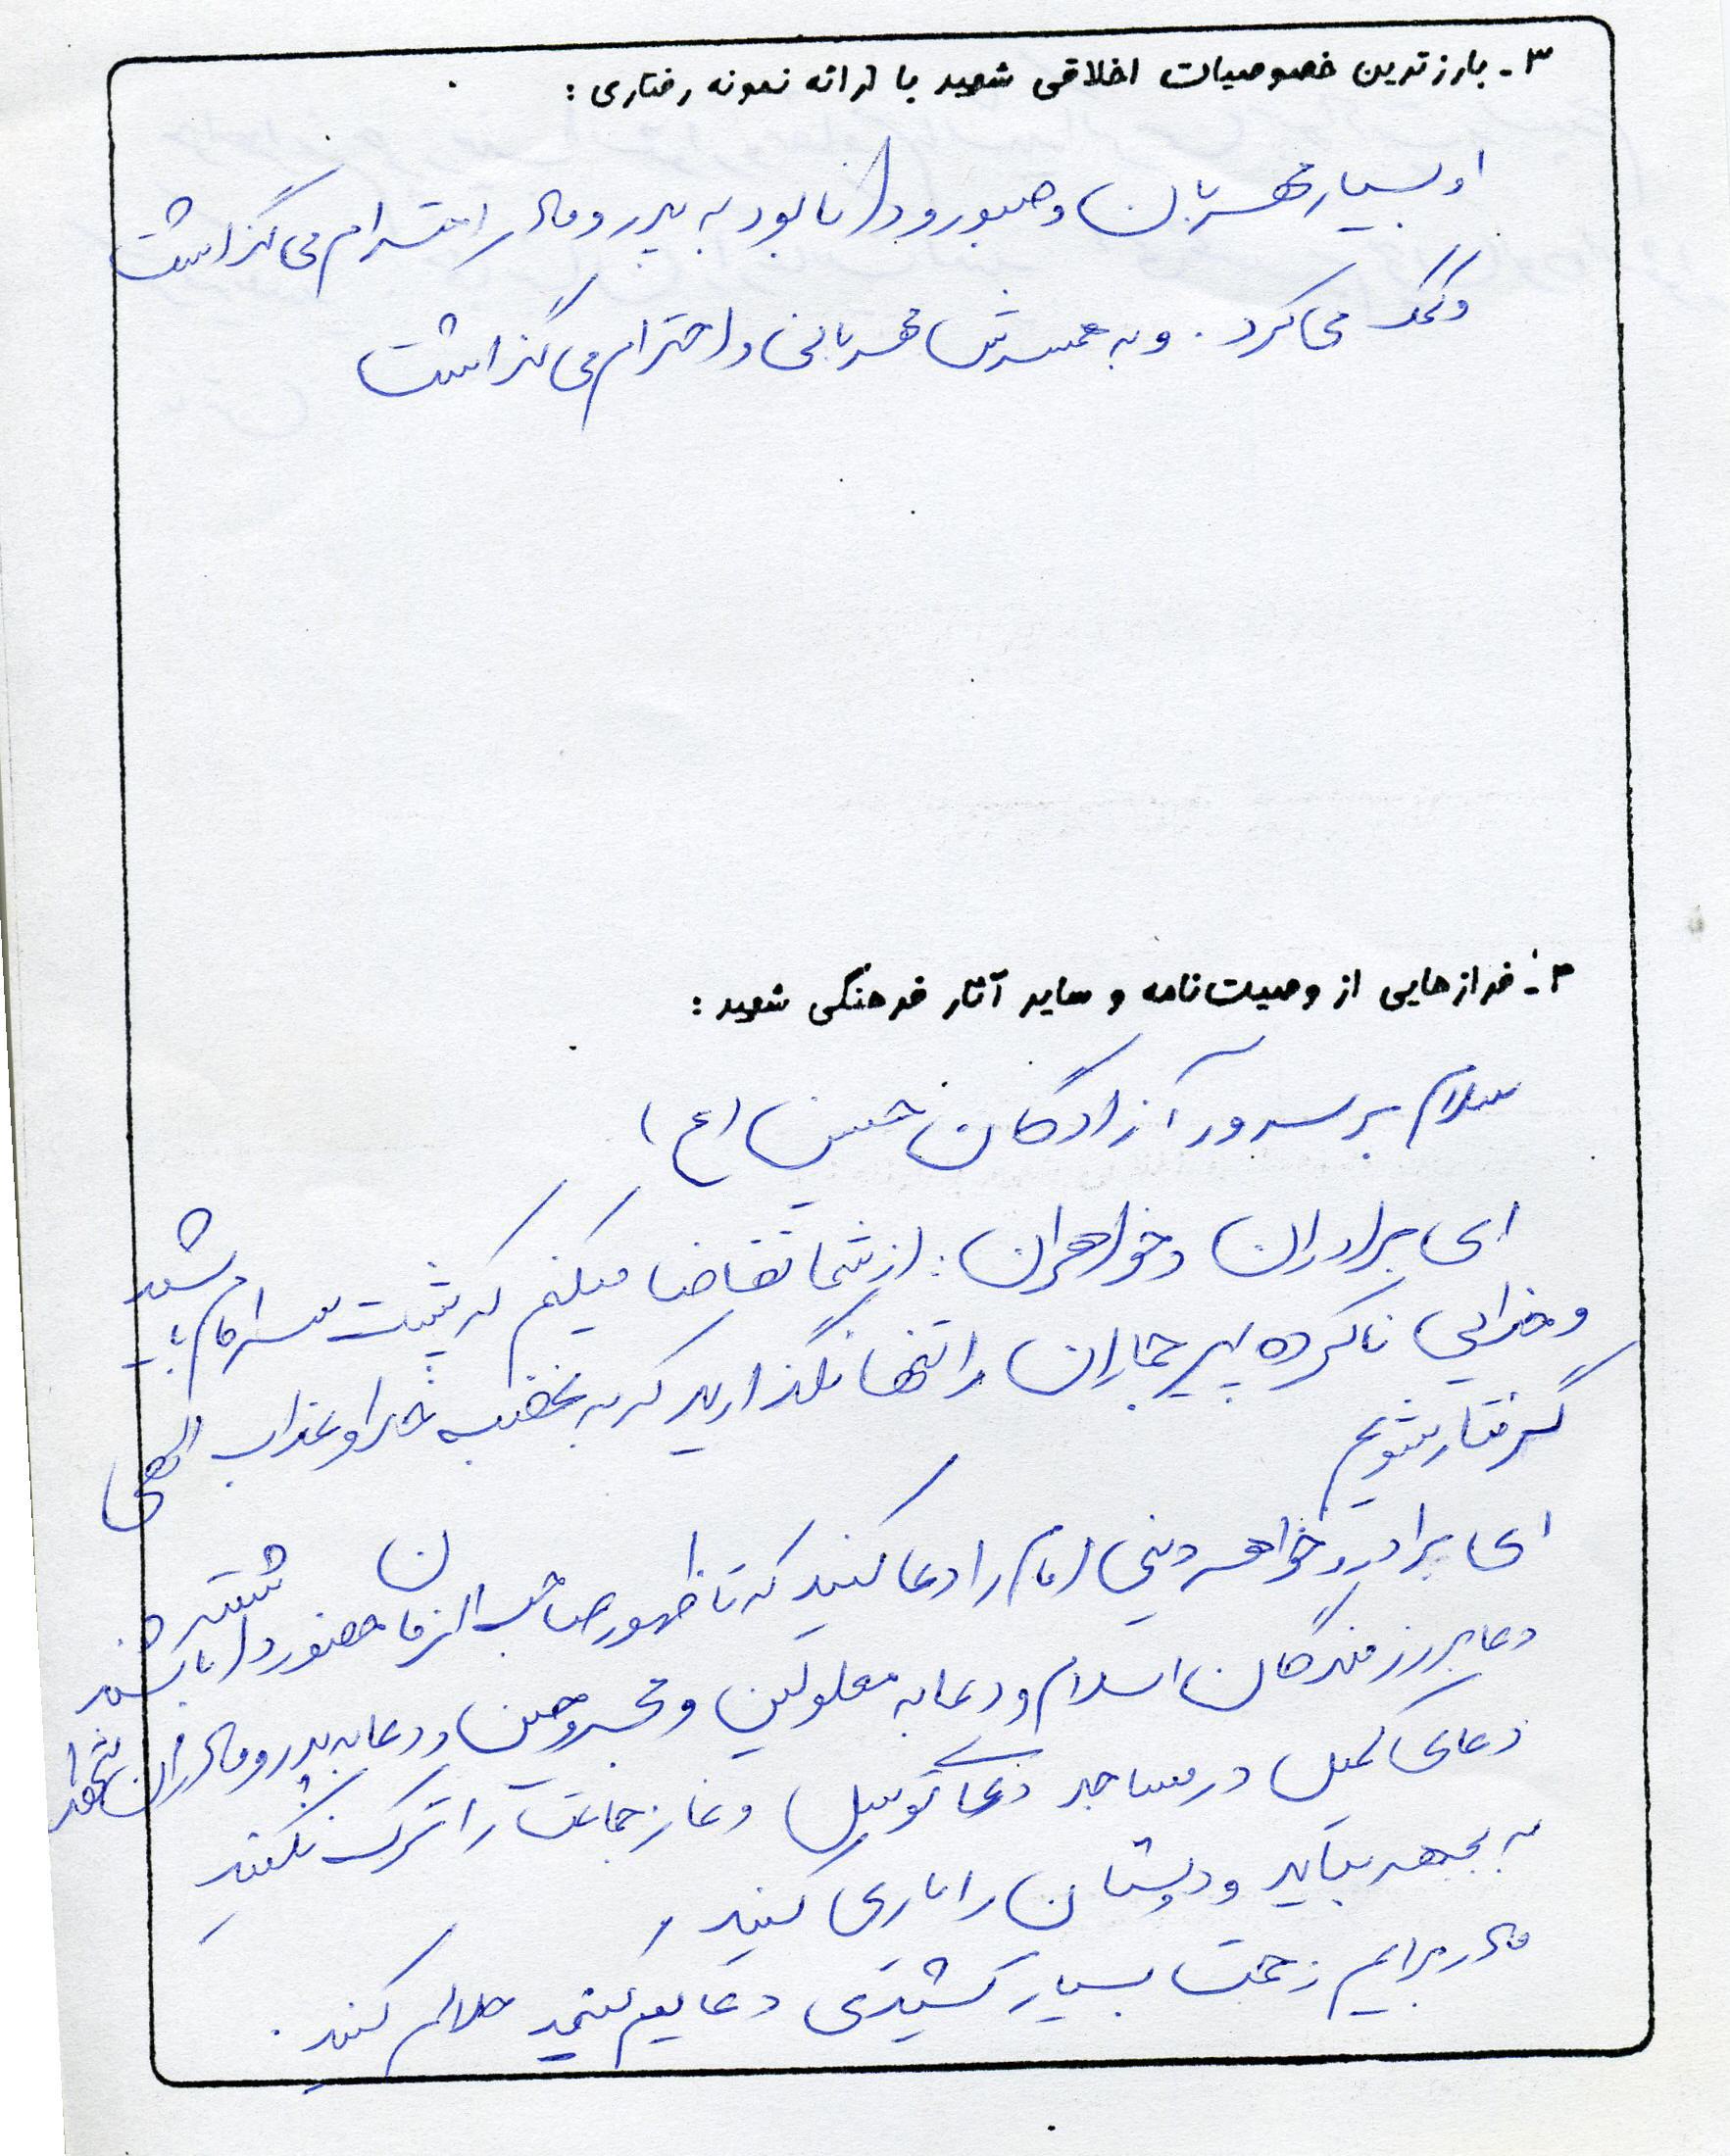 ۳ـ بارزترین خصوصیات اخلاقی شهید با ارائه نمونه رفتاری :
او بسیار مهربان و صبور و دانا بود به پدر و مادر احترام می گذاشت
و کمک می کرد . و به همسرش مهربانی و احترام می گذاشت
۴ـ فرازهایی از وصیت‌نامه و سایر آثار فرهنگی شهید :
سلام بر سرور آزادگان حسین (ع)
ای برادران و خواهران : از شما تقاضا میکنم که پشت سر امام باشید
و خدایی ناکرده پیر جماران را تنها نگذارید که به غضب خدا و عذاب الهی
گرفتار شویم
ای برادر و خواهر دینی امام را دعا کنید که تا ظهور صاحب الزمان حضور داشته باشند
دعا به رزمندگان اسلام و دعا به معلولین و مجروحین و دعا به پدر و مادران شهدا
دعای کمیل در مساجد دعای توسل و نماز جماعت را ترک نکنید
به جبهه بیایید و دوستان را یاری کنید
مادر برایم زحمت بسیار کشیدی دعایم کنید حلالم کنید .